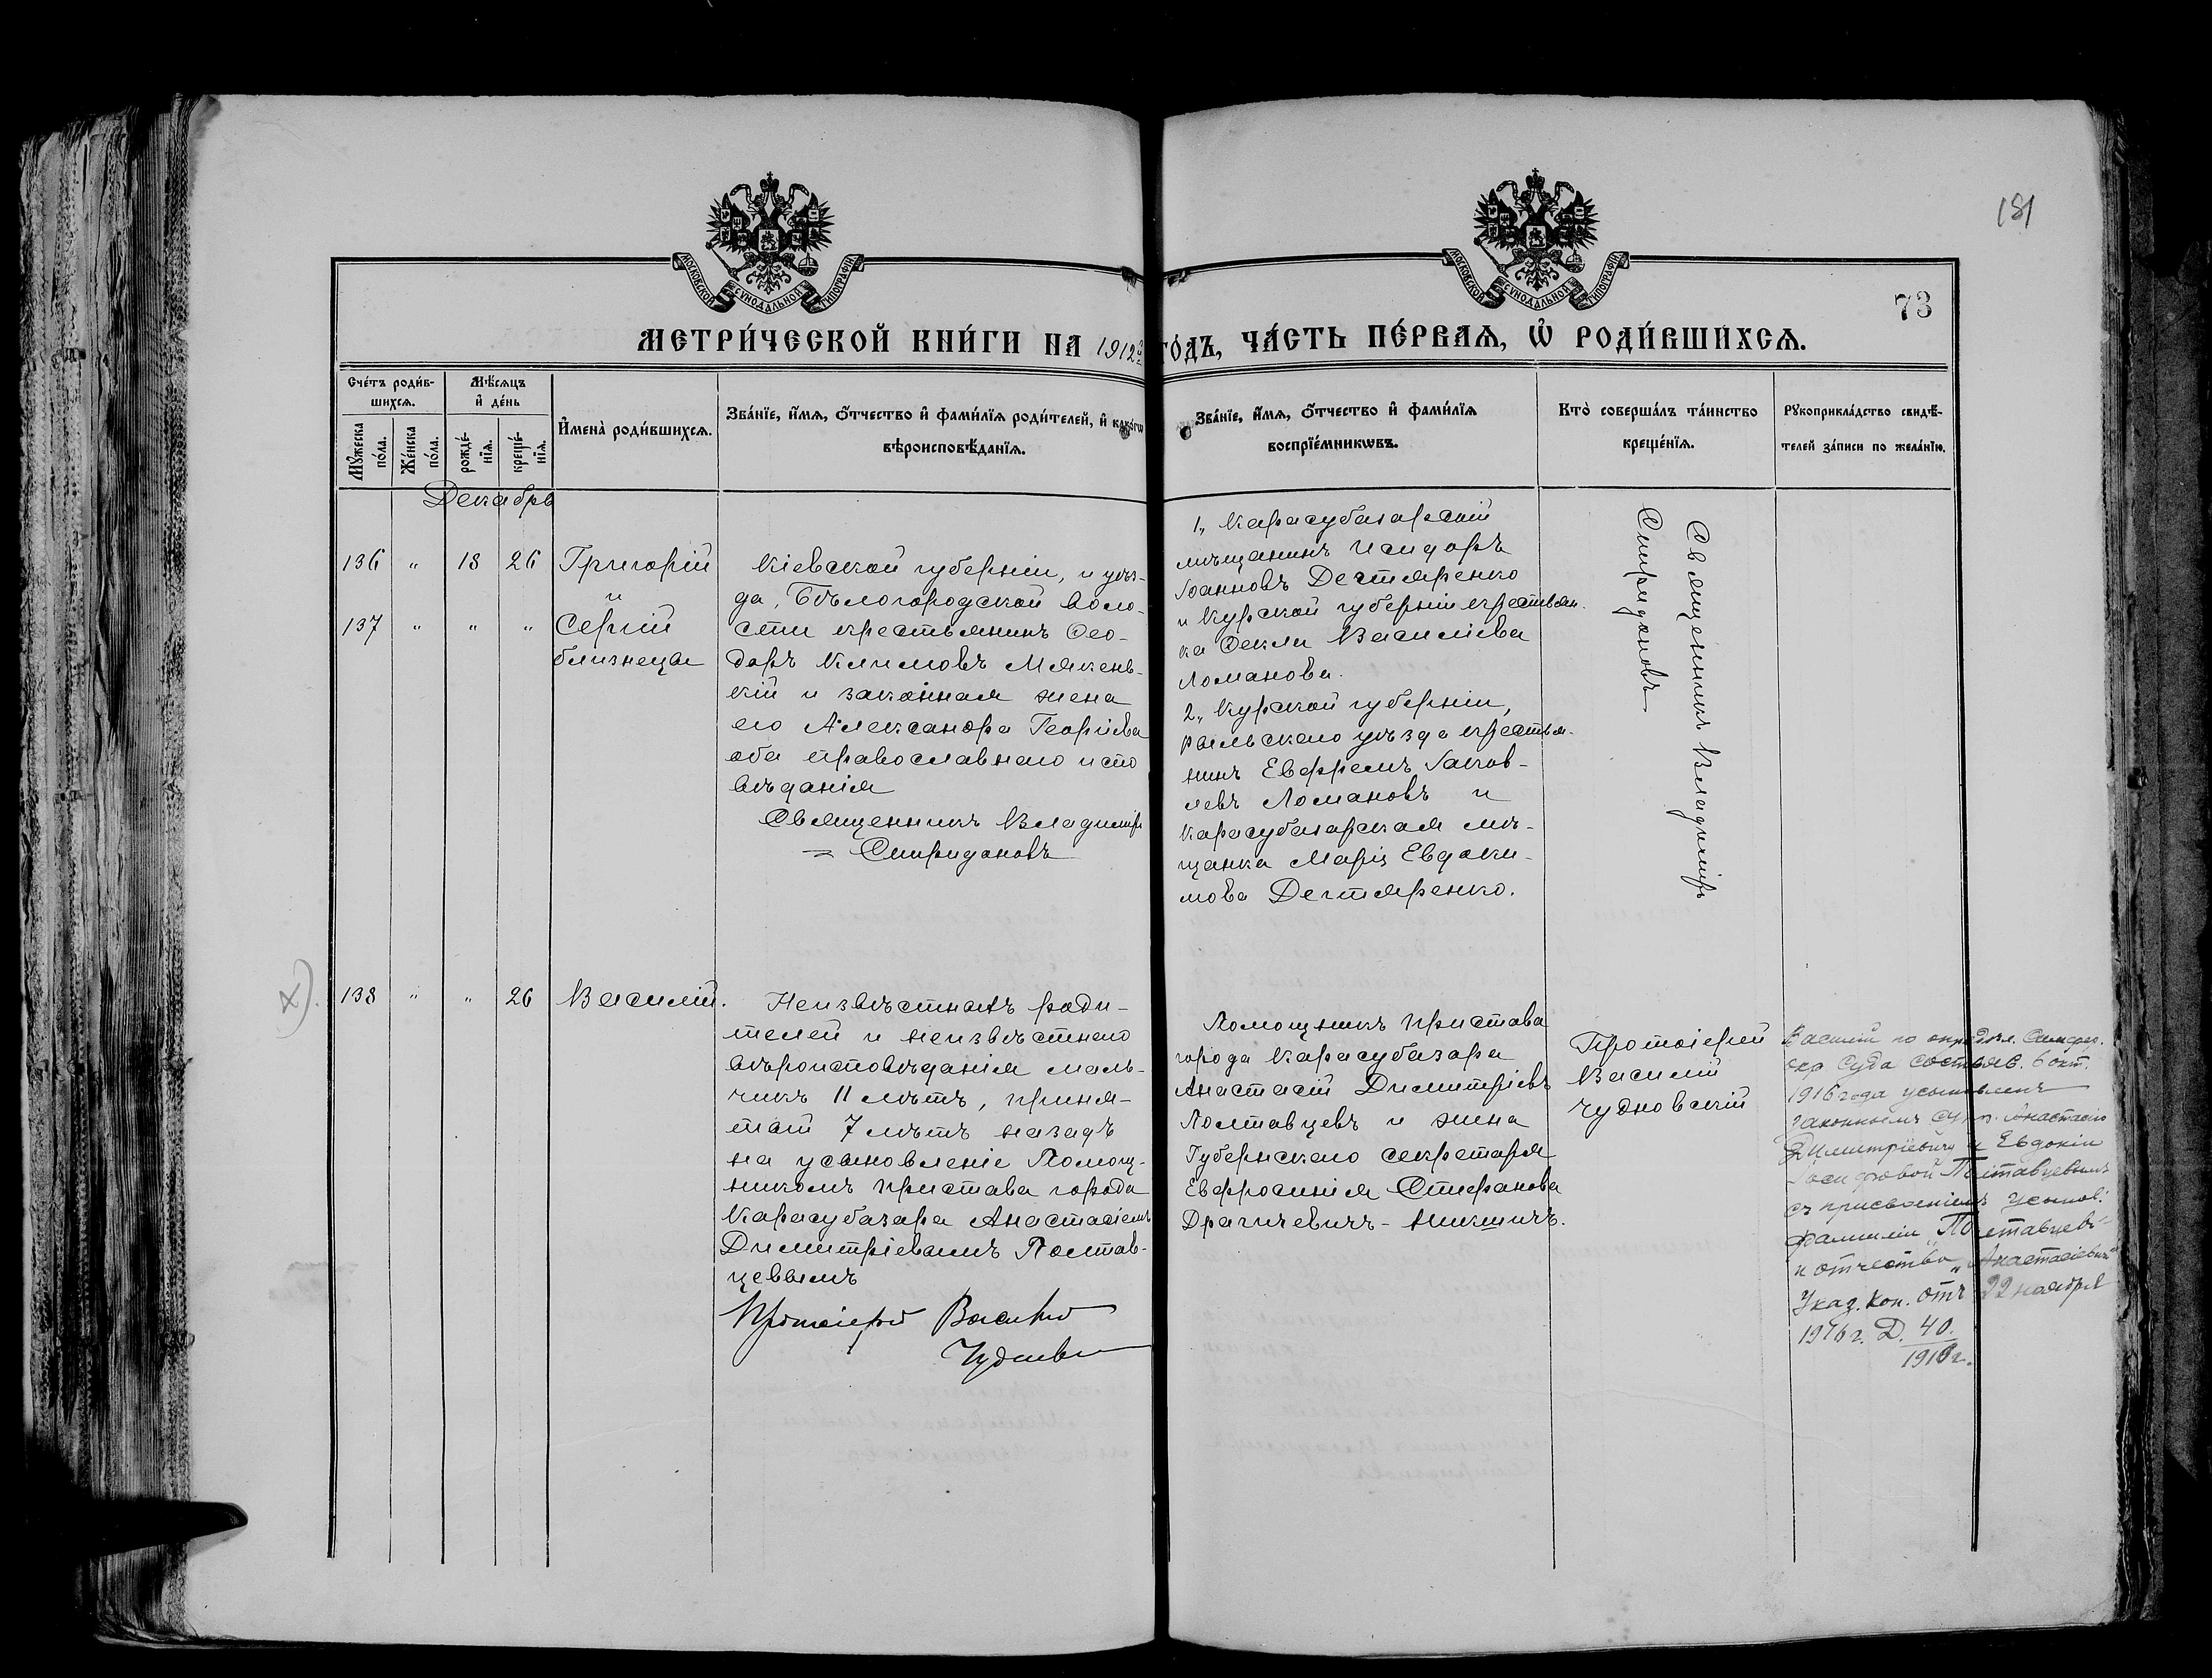 181
73
МОСКОВСКОЙ СѴНОДАЛЬНОЙ ТИПОГРАФІИ
МОСКОВСКОЙ СѴНОДАЛЬНОЙ ТИПОГРАФІИ
МЕТРИ́ЧЕСКОЙ КНИ́ГИ НА 1912й ГО́ДЪ, ЧА́СТЬ ПЕ́РВАѦ, Ѽ РОДИ́ВШИХСѦ.
Сче́тъ роди́в-
шихсѧ.
Мꙋ́жеска
по́ла.
Же́нска
по́ла.
Мѣ́сѧцъ
и҆ де́нь
рожде́-
нїѧ.
креще́-
нїѧ.
И҆мена̀ роди́вшихсѧ.
Зва́нїе, и҆́мѧ, ѻ҆́тчество и҆ фами́лїѧ роди́телей, и҆ како́гѡ
вѣроисповѣ́данїѧ.
Зва́нїе, и҆́мѧ, ѻ҆́тчество и҆ фами́лїѧ
воспрїе́мникѡвъ.
Кто̀ соверша́лъ та́инство
креще́нїѧ.
Рꙋкоприкла́дство свидѣ́-
телей за́писи по жела́нїю.
Декабрь
136 " 18 26 Григорій
и
137 " " " Сергій
близнецы
Кіевской губерніи, и уѣз-
да, Бѣлогородской воло-
сти крестьянинъ Ѳео-
доръ Климовъ Мякень-
кій и законная жена
его Александра Георгіева
оба православнаго испо
вѣданія
Священникъ Владиміръ
Спиридоновъ
1, Карасубазарскій
мѣщанинъ Исидоръ
Іоанновъ Дегтяренко
и Курской губерніи крестьян-
ка Ѳекла Василіева
Ломанова.
2, Курской губерніи,
Рыльскаго уѣзда крестья-
нинъ Евфремъ Іаков-
левъ Ломановъ и
Карасубазарская мѣ-
щанка Марія Евдоки-
мова Дегтяренко.
Священникъ Владиміръ
Спиридоновъ
138 " " 26 Василій.
Неизвѣстныхъ роди-
телей и неизвѣстнаго
вѣроисповѣданія маль-
чикъ 11 лѣтъ, приня-
тый 7 лѣтъ назадъ
на усыновленіе Помощ-
никомъ пристава города
Карасубазара Анастасіемъ
Димитріевымъ Полтав-
цевымъ
Протоіерей Василій
Чудновскій
Помощникъ пристава
города Карасубазара
Анастасій Димитріевъ
Полтавцевъ и жена
Губернскаго секретаря
Евфросинія Стефанова
Драгичевичъ-Никшичъ.
Протоіерей
Василій
Чудновскій
Василій по опредѣл. Симфер.
окр. Суда состояв. 6 окт.
1916 года усыновленъ
законными супр. Анастасію
Димитріевичу и Евдокіи
Іосифовой Полтавцевымъ
съ присвоеніемъ усынов.
фамиліи „Полтавцевъ"
и отчества „Анастасіевичъ"
Указ. Кон. отъ 22 ноября
1916 г. Д. 40.
1916 г.